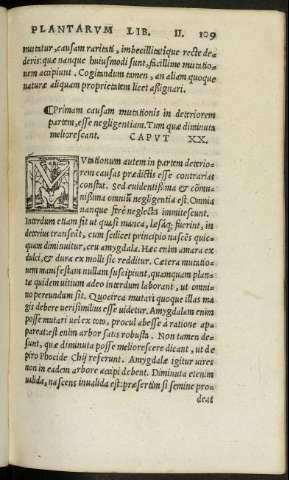 PLANTARVM LIB. II. 109
mutatur, causam rarietati, imbecillitatique recte de-
deris: quæ nanque huiusmodi sunt, facillime mutatio-
nem accipiunt. Cogitandum tamen, an aliam quoque
naturæ aliquam proprietatem licet assignari.
¶Primam causam mutationis in deteriorem
partem, esse negligentiam. Tum quæ diminuta
meliorescant. CAPVT XX.
MVtationum autem in partem deterio-
rem causas prædictis esse contrarias
constat. Sed euidentissima & cōmu-
nissima omniū negligentia est. Omnia
nanque ferè neglecta immitescunt.
Interdum etiam fit ut quasi nunca, læsaq; fuerint, in
deterius transeāt, cum scilicet principio nascēs quic-
quam diminuitur, ceu amygdala. Hæc enim amara ex
dulci, & dura ex molli sic redditur. Cætera mutatio-
nem manifestam nullam suscipiunt, quamquam plan-
tæ quidem uitium adeo interdum laborant, ut omni-
no pereundum sit. Quocirca mutari quoque illas ma-
gis debere uerisimilius esse uidetur. Amygdalam enim
posse mutari uel ex toto, procul abesse à ratione ap-
pareat: est enim arbor satis robusta. Non tamen de-
sunt, quæ diminuta posse meliorescere dicant, ut de
piro Phocide Chij referunt. Amygdalæ igitur uires
non in eadem arbore accipi debent. Diminuta etenim
ualida, nascens inualida est: præsertim si semine prou
deat